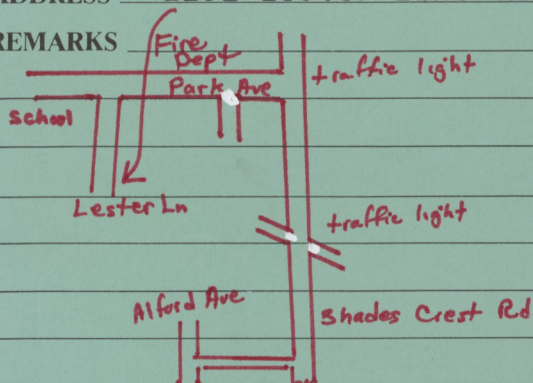 ADDRESS
REMARKS
Fire
Dept
traffic light
Park Ave
School
Lester Ln
traffic light
Alford Ave
Shades Crest Rd